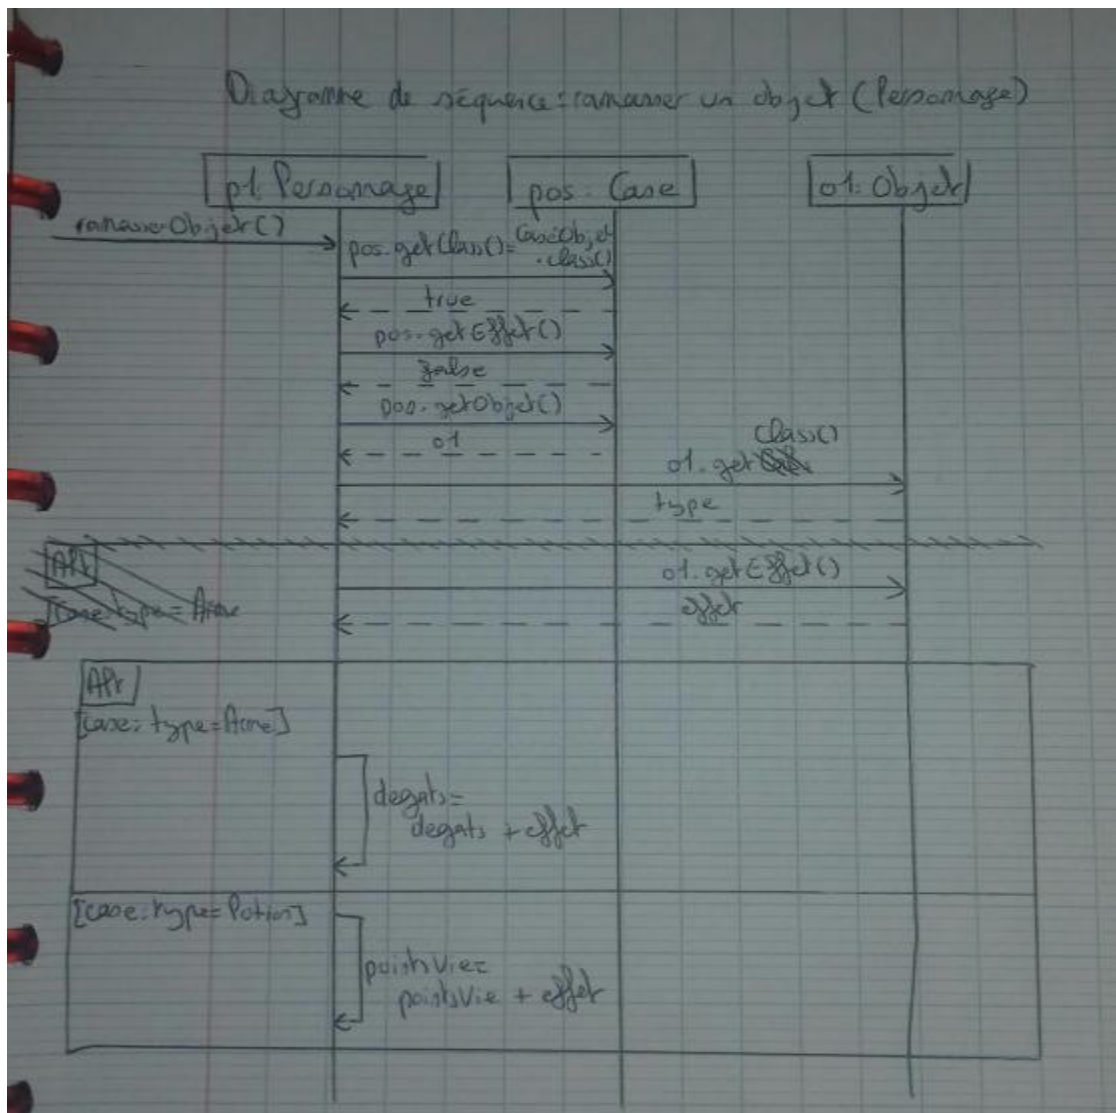 Diagramme de séquence : ramasser un objet (Personnage)
p1: Personnage
pos : Case
o1: Objet
ramasserObjet()
pos.getClass()= CaseObjet
.class()
true
pos.getEffet()
false
pos.getObjet()
o1
Class()
o1.get
type
Alt
o1.getEffet()
[case type = Arme
effet
Alt
[case: type=Arme]
degats=
degats + effet
[case: type=Potion]
pointsVie=
pointsVie + effet